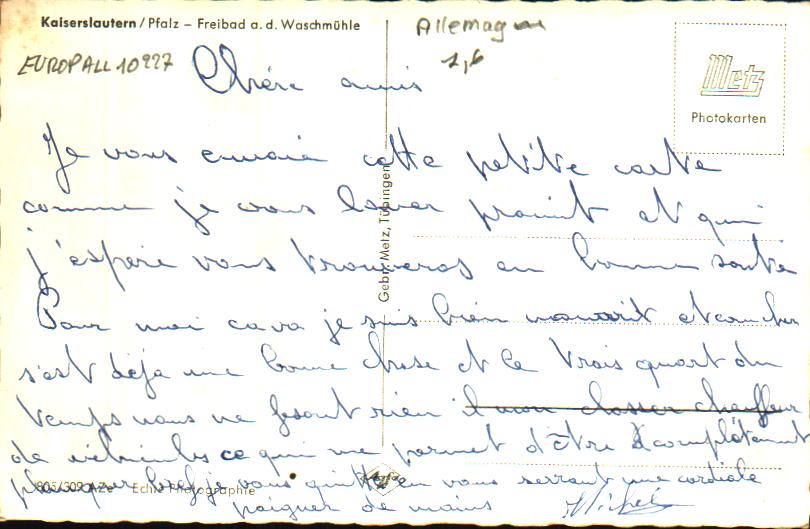 Kaiserslautern/Pfalz – Freibad a. d. Waschmühle
Allemagne
1,6
EUROPALL10927
Metz
Photokarten
Gebr. Metz, Tübingen
Chère amis
Je vous envoie cette petite carte
comme je vous l'aver promit et qui
j'espère vous trouveras en bonne santé
Pour moi ca va je suis bien nourrit et coucher
s'est déja une bonne chose et le trois quart du
temps nous ne fesont rien il mon classer chauffeur
de véhicules ce qui me permet d'être complètement
planquer bref je vous quitte en vous serrant une cordiale
poigner de mains Michel
805/309 AZe Echte Photographie